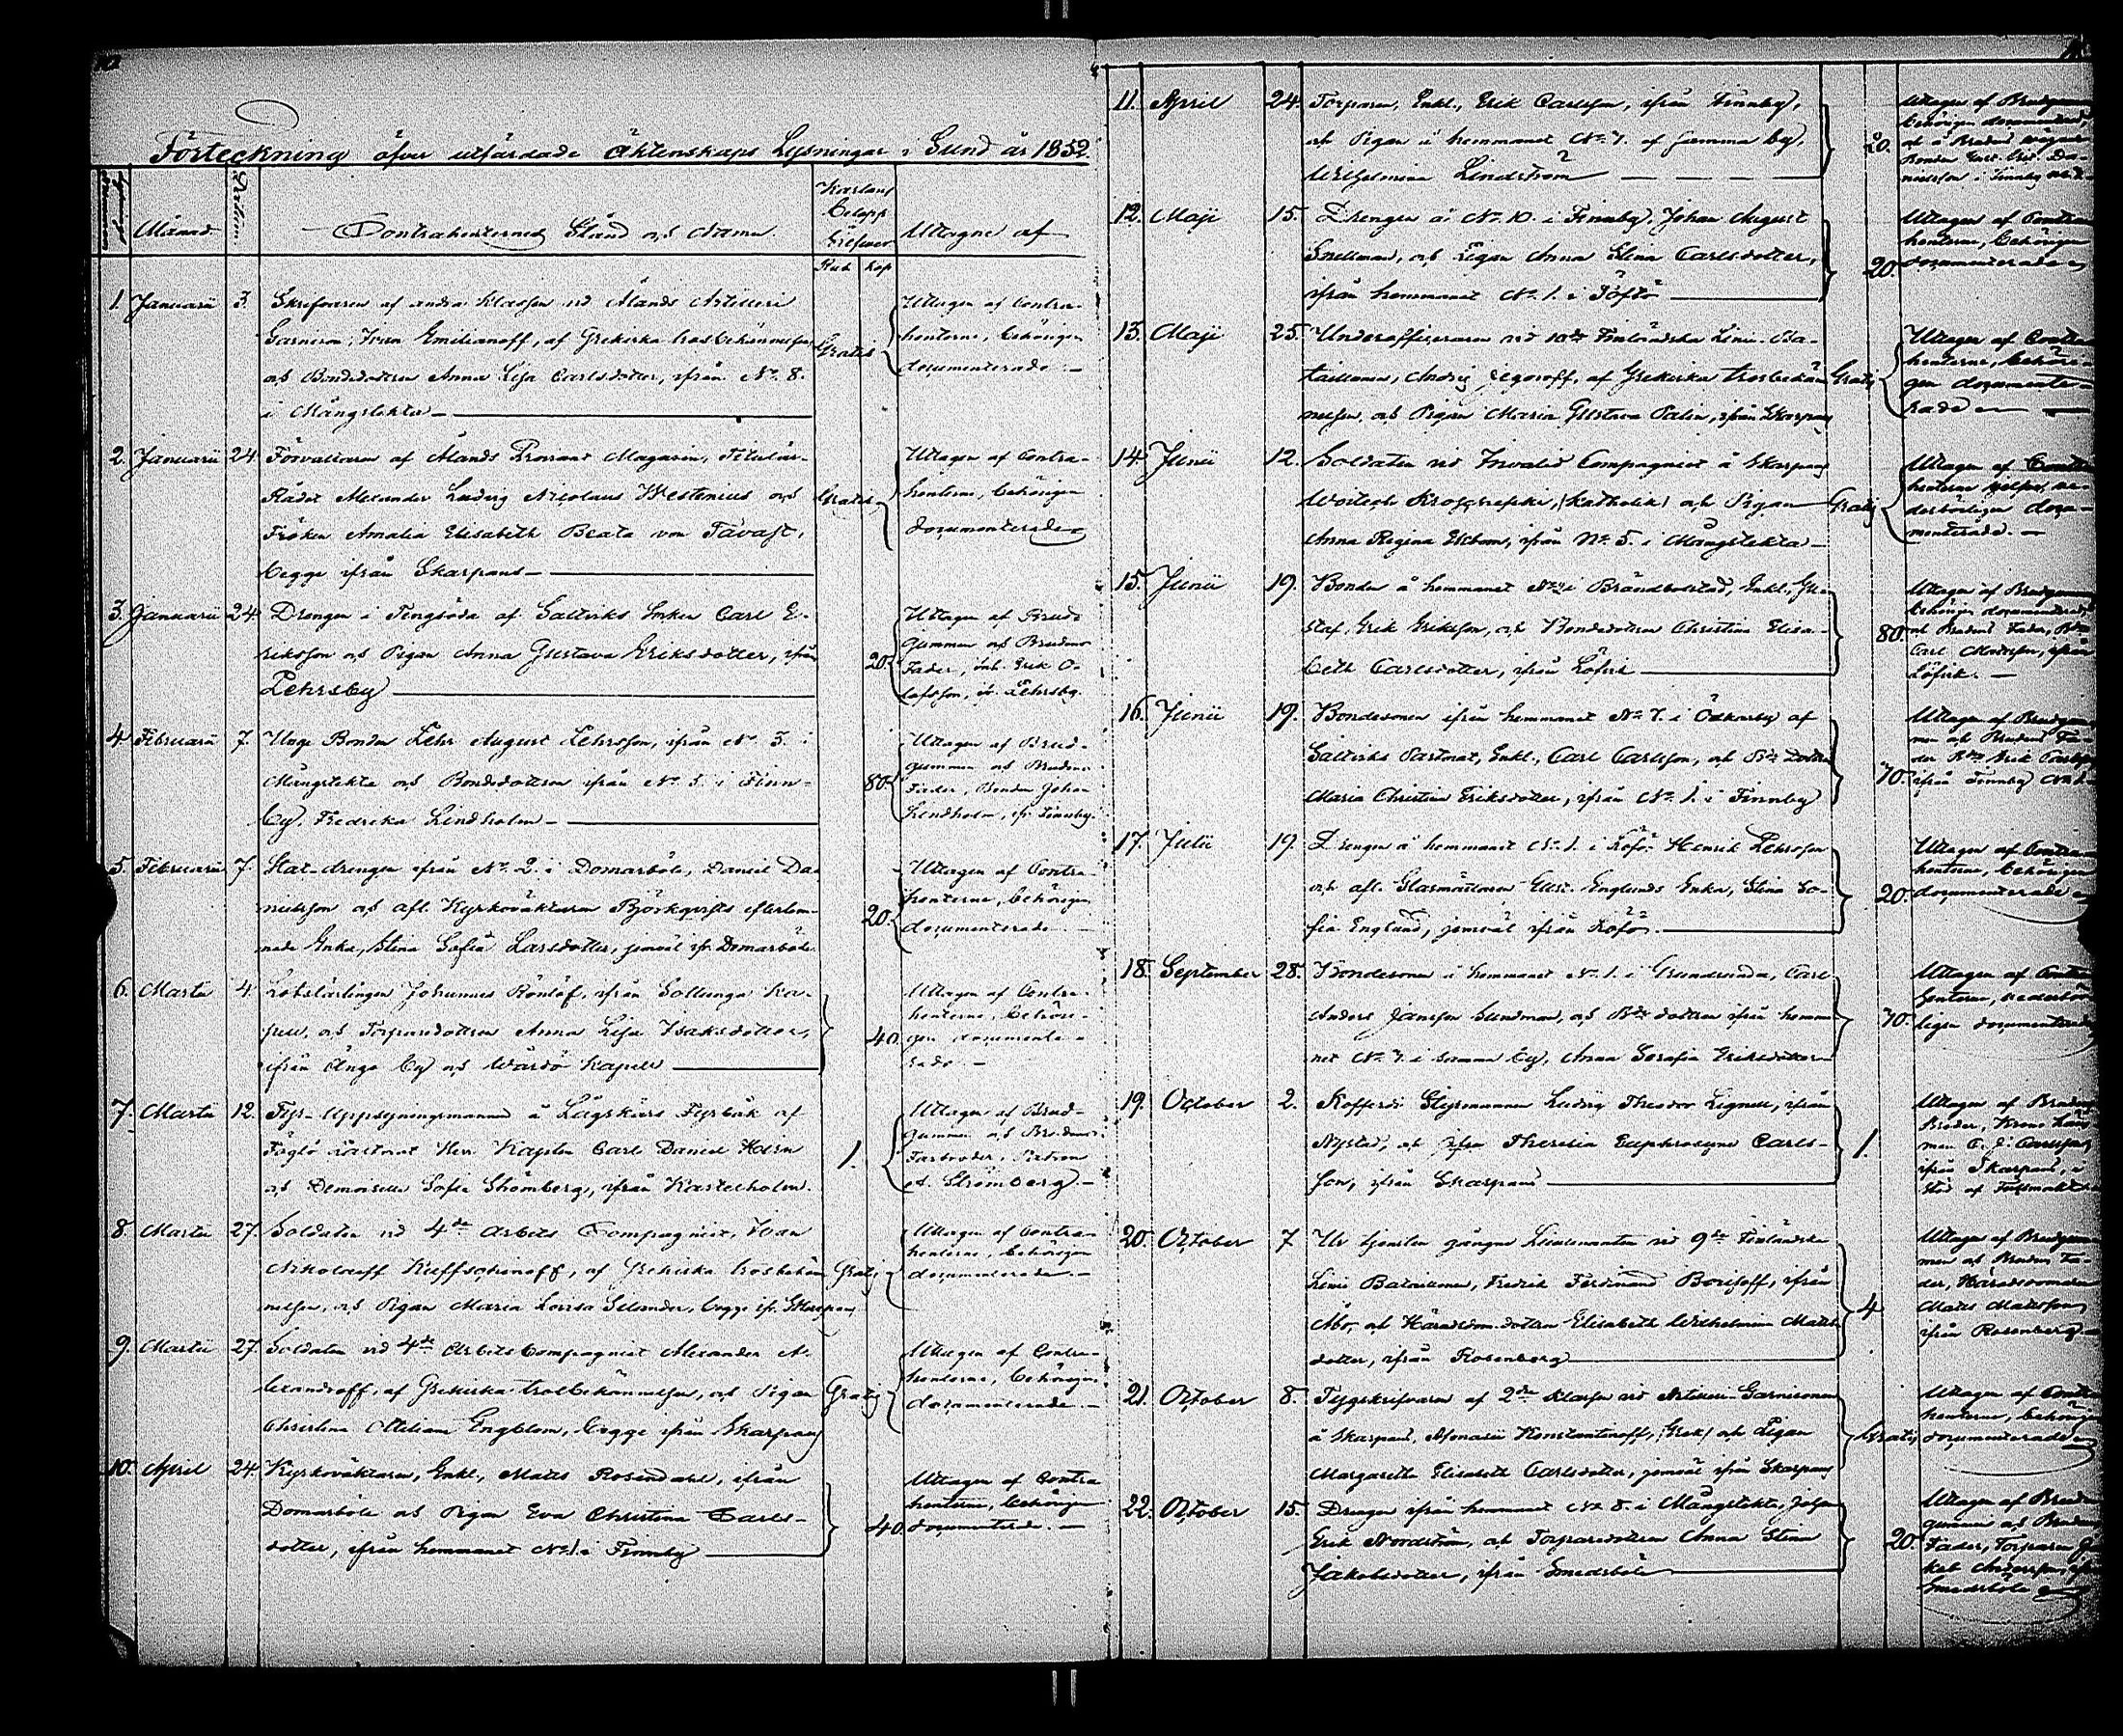 Förteckning öfver utfärdade Äktenskaps Lysningar i Sund år 1852.
Månad
Datum
Contrahenternas Stånd och Namn
Uttagne af
Rub. kop.
1. Januarii 3. Skrifvaren af andra klassen vid Ålands Artilleri
Garnison, Ivan Emilianoff, af Grekiska trosbekännelsen
och Bondedottren Anna Lisa Carlsdotter, ifrån No 8.
i Mångstekta
Gratis
Uttagen af Contra-
henterne, behörigen
documenterade.
2. Januarii 24. Förvaltaren af Ålands Proviant Magasin, Titulär-
Rådet Alexander Ludvig Nicolaus Westenius och
Fröken Amalia Elisabeth Beata von Tavast,
begge ifrån Skarpans
Gratis
Uttagen af Contra-
henterne, behörigen
documenterade
3. Januarii 24. Drengen i Tengsöda af Saltviks Socken Carl E-
riksson och Pigan Anna Gustava Eriksdotter, ifrån
Lehrsby
20.
Uttagen af Brud-
gummen och Brudens
Fader, Erik O-
lofsson, ifr. Lehrsby.
4. Februarii 7. Unge Bonden Lehr August Lehrsson, ifrån No 3. i
Mångstekta och Bondedottren ifrån No 5. i Finn-
by, Fredrika Lindholm
80.
Uttagen af Brud-
gummen och Brudens
Fader, Bonden Johan
Lindholm, ifr. Finnby.
5. Februarii 7. Stat-drengen ifrån No 2. i Domarböle, Daniel Da-
nielsson och afl. Kyrkoväktaren Björkqvists efterlem-
nade Enka, Stina Sofia Larsdotter, jemväl ifr. Domarböle
20.
Uttagen af Contra-
henterne, behörigen
documenterade.
6. Martii 4. Lotslärlingen Johannes Rönlöf, ifrån Sottunga Ka-
pell, och Torparedottren Anna Lisa Isaksdotter,
ifrån Ängö by och Wårdö Kapell
40.
Uttagen af Contra-
henterne, behöri-
gen documente-
rade.
7. Martii 12. Fyr-Uppsyningsmannen å Lågskärs Fyrbåk af
Föglö Pastorat Herr Kapten Carl Daniel
och Demoiselle Sofia Strömberg, ifrån Kastelholm.
1.
Uttagen af Brud-
gummen och Brudens
Farbroder, Patron
Strömberg
8. Martii 27. Soldaten vid 4de Arbets Compagniet, Ivan
Nikolaeff Kuffschinoff, af Grekiska trosbekän-
nelsen, och Pigan Maria Lovisa Selander, begge ifr. Skarpans
Gratis
Uttagen af Contra-
henterne, behörigen
documenterade.
9. Martii 27. Soldaten vid 4de Arbets Compagniet Alexander A-
lexandroff, af Grekiska trosbekännelsen, och Pigan
Christina Engblom, begge ifrån Skarpans
Gratis
Uttagen af Contra-
henterne, behörigen
documenterade.
10. April 24. Kyrkoväktaren, Enkl., Mats Rosendahl, ifrån
Domarböle och Pigan Eva Christina Carls-
dotter, ifrån hemmanet No 1. i Finnby
40.
Uttagen af Contra-
henterne, behörigen
documenterade.
11. April 24. Torparen, Enkl., Erik Carlsson, ifrån Finnby,
och Pigan å hemmanet No 7. af samma by,
Wilhelmina Lindström
20.
Uttagen af Brudgummen
behörigen documenterad
och å Brudens vägnar
Bonden Da-
nielsson i Finnby
12. Maji 15. Drengen å No 10. i Finnby, Johan August
Snellman, och Pigan Anna Stina Carlsdotter,
ifrån hemmanet No 1. i Töftö
20.
Uttagen af Contra-
henterne, behörigen
documenterade
13. Maji 25. Underofficeraren vid 10de Finländska Linie-Ba-
taillonen, Andrej Jegoroff, af Grekiska trosbekän-
nelsen, och Pigan Maria Gustava Palin, ifrån Skarpans
Gratis
Uttagen af Contra-
henterne, behöri-
gen documente-
rade
14. Junii 12. Soldaten vid Invalid Compagniet å Skarpans
Woitech (katholik) och Pigan
Anna Regina, ifrån No 5. i Mångstekta
Gratis
Uttagen af Contra-
henterne ve-
derbörligen docu-
menterade.
15. Junii 19. Bonden å hemmanet i Brändbolstad, Enkl., Gu-
staf Erik Eriksson, och Bondedottren Christina Elisa-
beth Carlsdotter, ifrån Löfvik
80.
Uttagen af Brudgummen
behörigen documenterad,
och Brudens Fader,
Carl Mattsson, ifrån
Löfvik.
16. Junii 19. Bondesonen ifrån hemmanet No 7. i Ödkarby af
Saltviks Pastorat, Enkl., Carl Carlsson, och Bde dottren
Maria Christina Eriksdotter, ifrån No 1. i Finnby
70.
Uttagen af Brudgum-
men och Brudens Fa-
der Bden Erik Carlsson
ifrån Finnby No 1.
17. Julii 19. Drengen å hemmanet No 1. i Löfö Henrik Lehrsson
och afl. Glasmästaren Englunds Enka, Stina So-
fia Englund, jemväl ifrån Löfö.
20.
Uttagen af Contra-
henterne, behörigen
documenterade
18. September 28. Bondesonen å hemmanet No 1. i Grundsunda, Carl
Anders Jansson Sundman, och Bde dottren ifrån hemma-
net No 7. i samma by, Anna Serafia Eriksdotter
70.
Uttagen af Contra-
henterne, vederbör-
ligen documenterade
19. October 2. Kofferdi Styrmannen Ludvig Theodor Lignell, ifrån
Nystad, och Theresia Euphrosyne Carls-
son, ifrån Skarpans
1.
Uttagen af Brudens
Broder, Krono Läns-
man C. J. Carlsson,
ifrån Skarpans, i
stöd af Fullmakt
20. October 7. Ur tjensten gångne Lieutenanten vid 9de Finländska
Linie Bataillonen, Fredrik Ferdinand Borisoff, ifrån
Åbo, och Häradsdom. dottren Elisabeth Wilhelmina Mats-
dotter, ifrån Rosenberg
4
Uttagen af Brudgum-
men och Brudens Fa-
der, Häradsdomaren
Mats Matsson,
ifrån Rosenberg
21. October 8. Tygskrifvaren af 2dra klassen vid Artilleri-Garnisonen
å Skarpans, Afanasii Konstantinoff, (Grek) och Pigan
Margaretha Elisabeth Carlsdotter, jemväl ifrån Skarpans
Gratis
Uttagen af Contra-
henterne, behörigen
documenterade
22. October 15. Drengen ifrån hemmanet No 8. i Mångstekta, Johan
Erik Nordström, och Torparedottren Anna Stina
Jakobsdotter, ifrån Smedsböle
20.
Uttagen af Brud-
gummen och Brudens
Fader, Torparen Ja-
kob Andersson, ifrån
Smedsböle